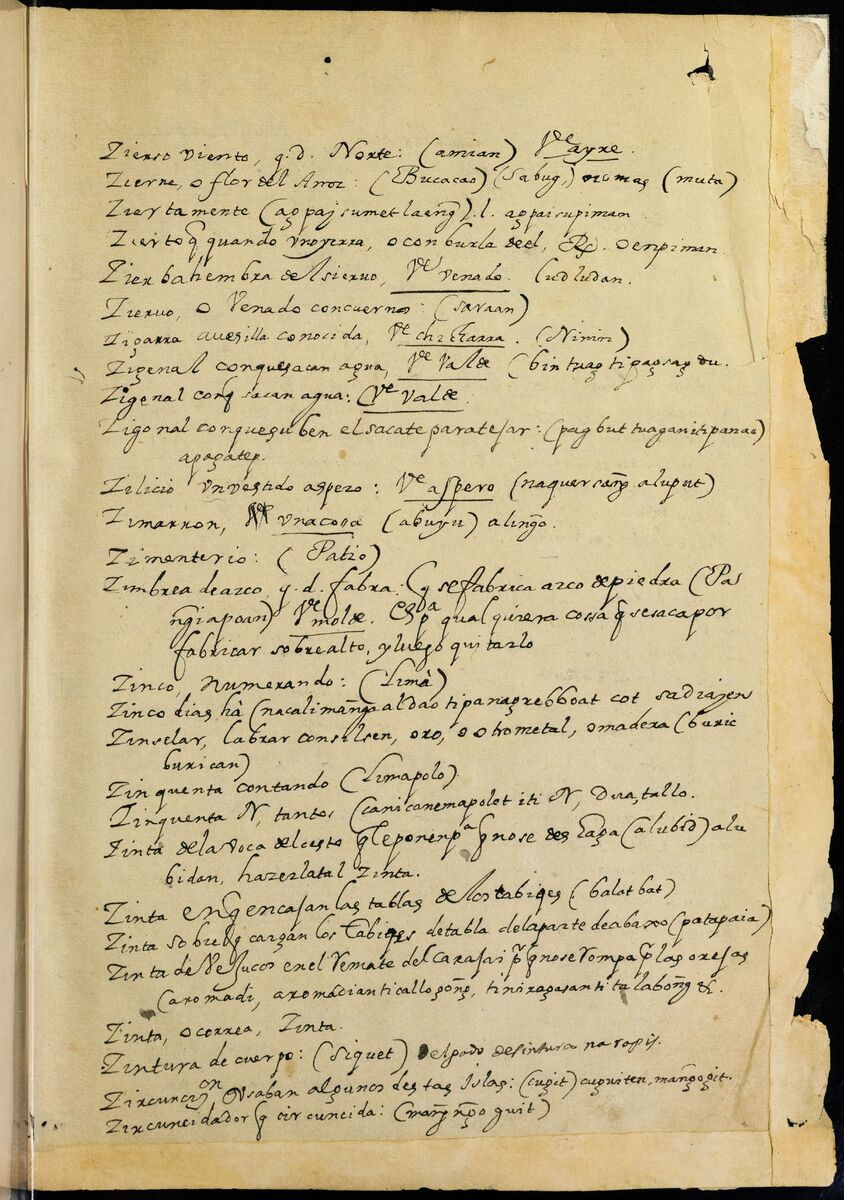 Zierso viento, q.d. Norte: (amian) Vᵉ ayre.
Zierne, o flor del Arroz: (Bucacao) (Sabug,) (muta)
Ziertamente (aȯpaj sumetlaeng̃).l. aȯpaisupiman
Zierto q̃ quando , o con burla deel, Rp. oenpiman.
Zierba hembra del siervo, Vᵉ venado. (udludan.
Ziervo, o Venado concuernos: (saraan)
Zigarra avesilla conocida, Vᵉ chicharra. (Ninin)
Zigenal conquesacan agua, Vᵉ Valde (bin
Zigenal conq̃ sacan agua: (Vᵉ Valde.
Zigonal conquesuben el sacate paratejar: (pagbuttuaganitipanao)
apagatep.
Zilicio Vnvestido aspero: Vᵉ aspero (naquersang̃ aluput)
Zimarron, Vᵉ vnacosa (abuyu) aling̃o.
Zimenterio: (Patio)
Zimbrea de arco q.d. fabra: q̃ sefabrica arco depiedra (Pa
ng̃iapoan) Vᵉ molde. Es pᵃ qualquiera cossa q̃ sesacapor
fabricar sobrealto, yluego quitarlo
Zinco, numerando: (Limà)
Zinco dias hà (nacalimang̃a aldao tipanagrebboat cot sadiajen
Zinselar, labrar consilsen, oro, o otrometal, omadera (buric
burican)
Zinquenta contando (Limapolo)
Zinquenta N, tantos (canicanemapolot iti N, Dua, tallo.
Zinta dela Voca delcesto q̃ leponen pᵃ q̃ nose (alubid) alu
bidan, hazerlatal Zinta.
Zinta enq̃ encajan las tablas delostabiqes (balatbat)
Zinta sobreq̃ cargan los tabiqes detabla delaparte deabaxo (patapaia)
Zinta de Vejucos enel Remate del carajai pᵃ q̃ nose rompa las orejas
(aromadi, aromadianticallogong̃, tiniragasantitalabong̃ &.
Zinta, o correa, Zinta.
Zintura de cuerpo: (siquet) Delgado desintura naropis.
Zircuncisᵒⁿ Vsaban algunos destas Islas: (cugit) cuguiten, mang̃ogit.
Zircuncidador q̃ circuncida: (mang̃oguit)